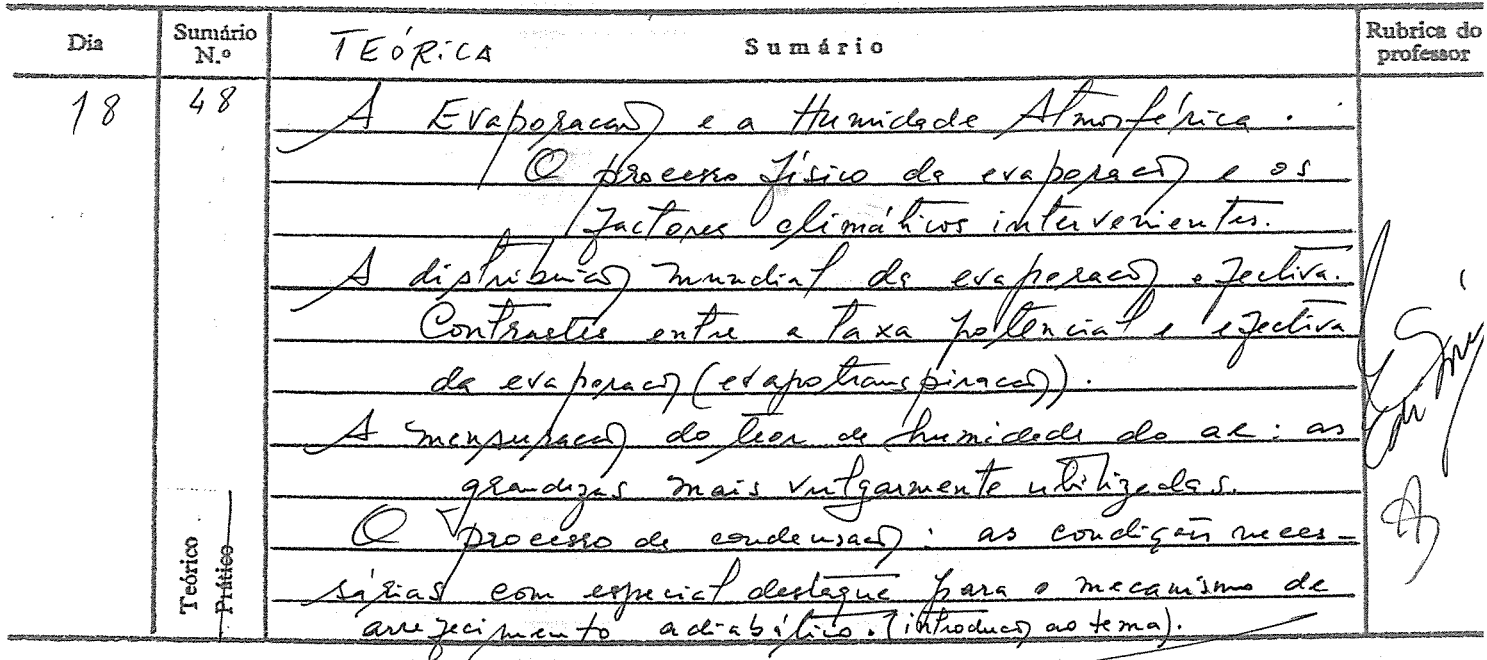 Dia Sumário N.º TEÓRICA Sumário Rubrica do professor
18 48 A Evaporação e a Humidade Atmosférica.
O processo físico da evaporação e os
factores climáticos intervenientes.
A distribuição mundial da evaporação efectiva.
Contrastes entre a taxa potencial e efectiva
da evaporação (evapotranspiração).
A mensuração do teor de humidade do ar: as
grandezas mais vulgarmente utilizadas.
O processo de condensação: as condições neces-
sárias com especial destaque para o mecanismo de
arrefecimento adiabático. (introdução ao tema).
Teórico
Prático